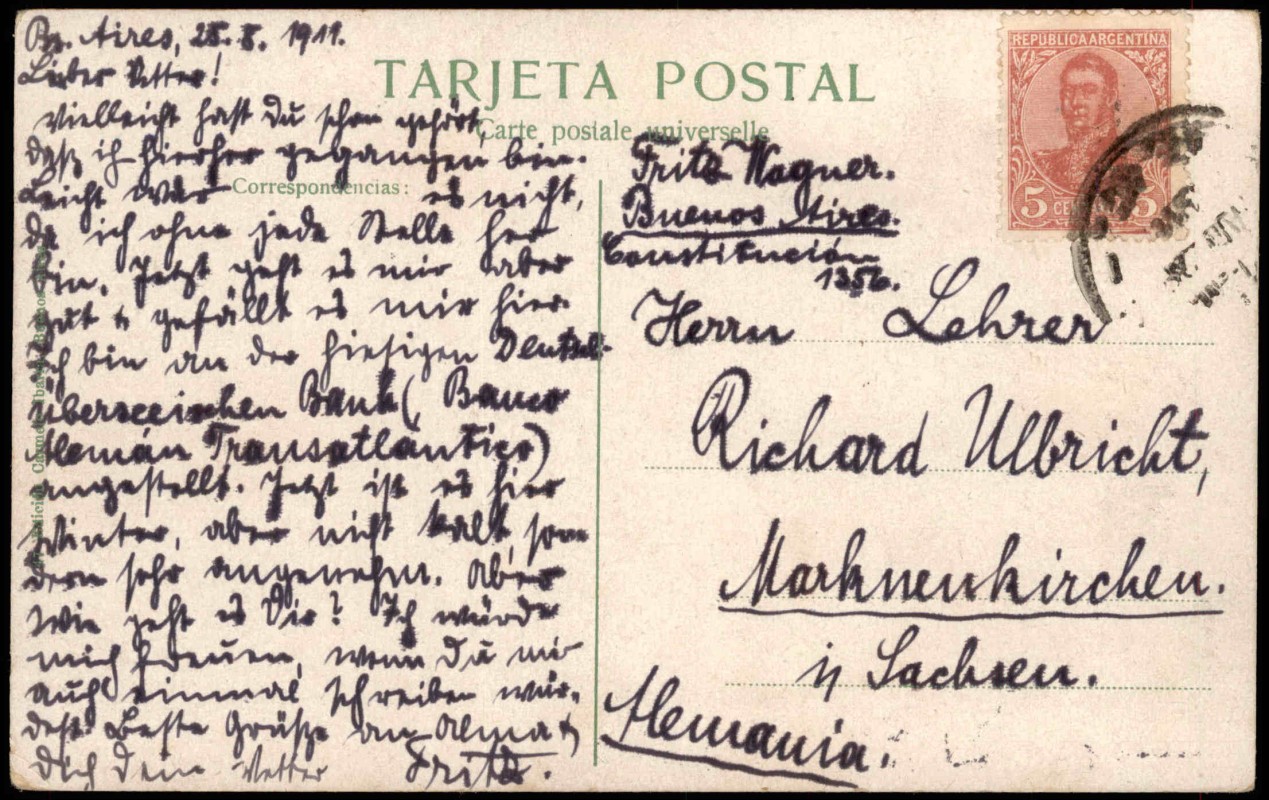 Bs. Aires, 28.8. 1911.
Lieber Vetter!
Vielleicht hast Du schon gehört,
daß ich hierher gegangen bin.
Leicht war es nicht,
da ich ohne jede Stelle her
bin. Jetzt geht es mir aber
gut u gefällt es mir hier.
Ich bin an der hiesigen Deutsch-
überseeischen Bank (Banco
Alemán Transatlántico)
angestellt. Jetzt ist es hier
Winter, aber nicht kalt, son
dern sehr angenehm. Aber
wie geht es Dir? Ich würde
mich freuen, wenn Du mir
auch einmal schreiben wür-
dest. Beste Grüße an Alma u
Dich Dein Vetter Fritz.
TARJETA POSTAL
Carte postale universelle
Correspondencias:
REPUBLICA ARGENTINA
5 5
Fritz Wagner.
Buenos Aires.
Constitución
1356.
Herrn Lehrer
Richard Ulbricht,
Markneukirchen.
i/ Sachsen.
Alemania.